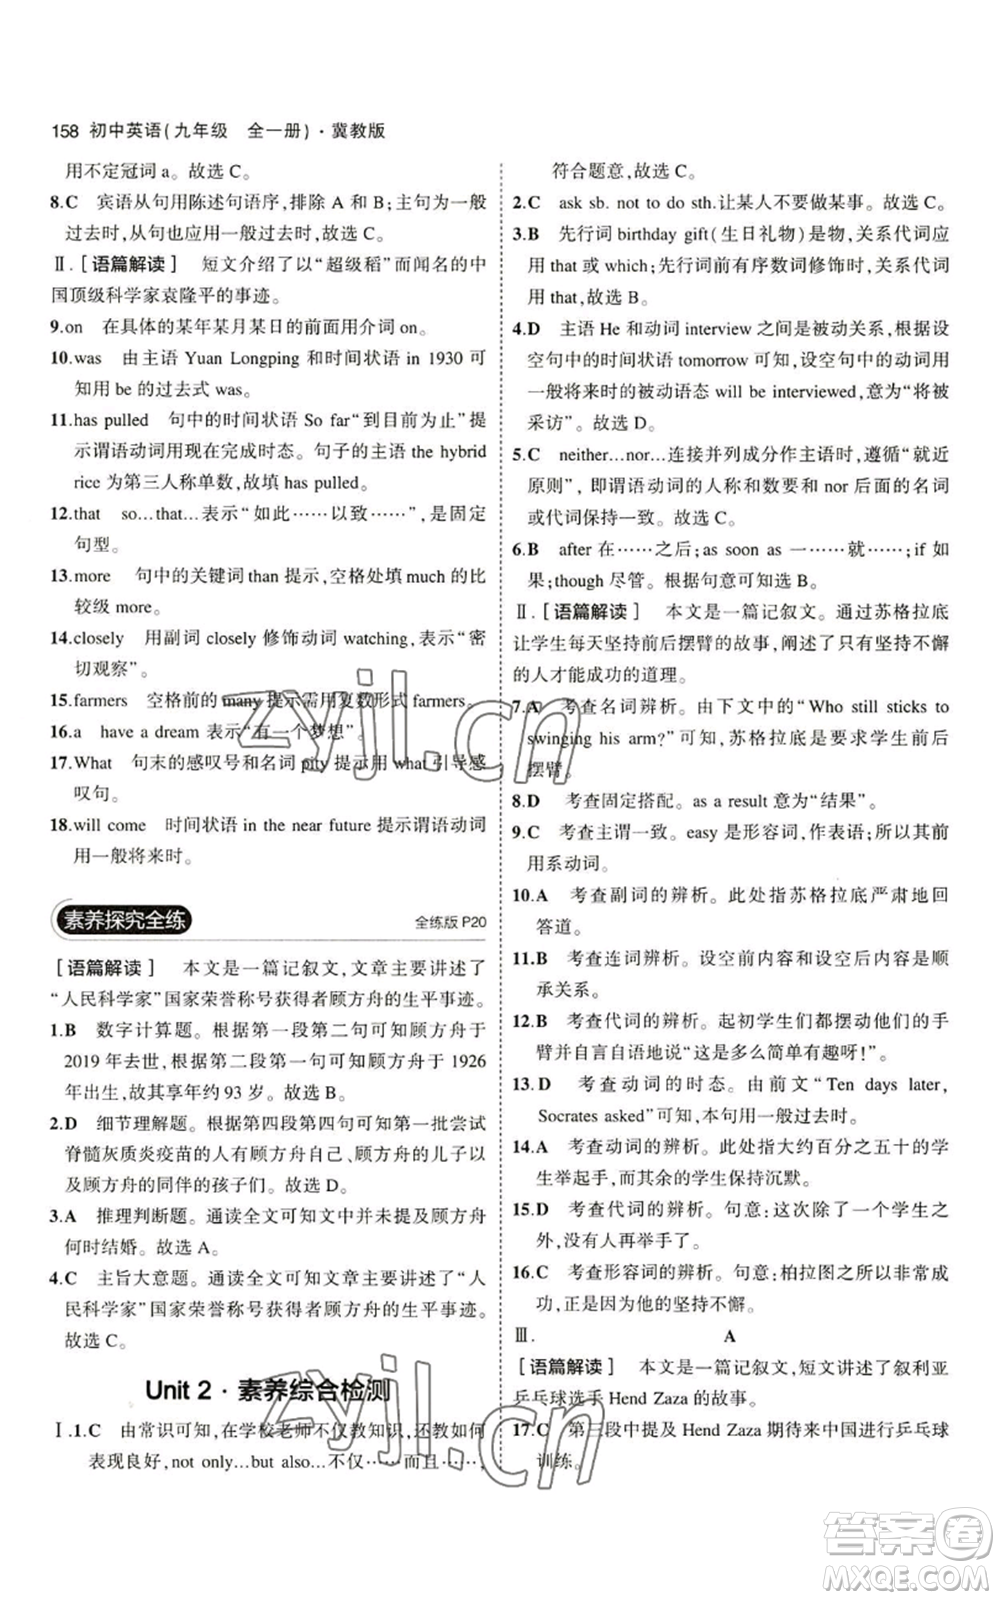 158 初中英语(九年级 全一册)·冀教版
用不定冠词 a。故选 C。
8.C 宾语从句用陈述句语序,排除 A 和 B;主句为一般
过去时,从句也应用一般过去时,故选 C。
Ⅱ.[语篇解读] 短文介绍了以“超级稻”而闻名的中
国顶级科学家袁隆平的事迹。
9.on 在具体的某年某月某日的前面用介词 on。
10.was 由主语 Yuan Longping 和时间状语 in 1930 可
知用 be 的过去式 was。
11.has pulled 句中的时间状语 So far“到目前为止”提
示谓语动词用现在完成时态。句子的主语 the hybrid
rice 为第三人称单数,故填 has pulled。
12.that so…that…表示“如此……以致……”,是固定
句型。
13.more 句中的关键词 than 提示,空格处填 much 的比
较级 more。
14.closely 用副词 closely 修饰动词 watching,表示“密
切观察”。
15.farmers 空格前的 many 提示需用复数形式 farmers。
16.a have a dream 表示“有一个梦想”。
17.What 句末的感叹号和名词 pity 提示用 what 引导感
叹句。
18.will come 时间状语 in the near future 提示谓语动词
用一般将来时。
素养探究全练 全练版 P20
[语篇解读] 本文是一篇记叙文,文章主要讲述了
“人民科学家”国家荣誉称号获得者顾方舟的生平事迹。
1.B 数字计算题。根据第一段第二句可知顾方舟于
2019 年去世,根据第二段第一句可知顾方舟于 1926
年出生,故其享年约 93 岁。故选 B。
2.D 细节理解题。根据第四段第四句可知第一批尝试
脊髓灰质炎疫苗的人有顾方舟自己、顾方舟的儿子以
及顾方舟的同伴的孩子们。故选 D。
3.A 推理判断题。通读全文可知文中并未提及顾方舟
何时结婚。故选 A。
4.C 主旨大意题。通读全文可知文章主要讲述了“人
民科学家”国家荣誉称号获得者顾方舟的生平事迹。
故选 C。
Unit 2·素养综合检测
Ⅰ.1.C 由常识可知,在学校老师不仅教知识,还教如何
表现良好,not only…but also…不仅……而且……,
符合题意,故选 C。
2.C ask sb. not to do sth.让某人不要做某事。故选 C。
3.B 先行词 birthday gift(生日礼物)是物,关系代词应
用 that 或 which;先行词前有序数词修饰时,关系代词
用 that,故选 B。
4.D 主语 He 和动词 interview 之间是被动关系,根据设
空句中的时间状语 tomorrow 可知,设空句中的动词用
一般将来时的被动语态 will be interviewed,意为“将被
采访”。故选 D。
5.C neither…nor…连接并列成分作主语时,遵循“就近
原则”,即谓语动词的人称和数要和 nor 后面的名词
或代词保持一致。故选 C。
6.B after 在……之后;as soon as 一……就……;if 如
果;though 尽管。根据句意可知选 B。
Ⅱ.[语篇解读] 本文是一篇记叙文。通过苏格拉底
让学生每天坚持前后摆臂的故事,阐述了只有坚持不懈
的人才能成功的道理。
7.A 考查名词辨析。由下文中的“Who still sticks to
swinging his arm?”可知,苏格拉底是要求学生前后
摆臂。
8.D 考查固定搭配。as a result 意为“结果”。
9.C 考查主谓一致。easy 是形容词,作表语;所以其前
用系动词。
10.A 考查副词的辨析。此处指苏格拉底严肃地回
答道。
11.B 考查连词辨析。设空前内容和设空后内容是顺
承关系。
12.B 考查代词的辨析。起初学生们都摆动他们的手
臂并自言自语地说“这是多么简单有趣呀!”。
13.D 考查动词的时态。由前文“Ten days later,
Socrates asked”可知,本句用一般过去时。
14.A 考查动词的辨析。此处指大约百分之五十的学
生举起手,而其余的学生保持沉默。
15.D 考查代词的辨析。句意:这次除了一个学生之
外,没有人再举手了。
16.C 考查形容词的辨析。句意:柏拉图之所以非常成
功,正是因为他的坚持不懈。
Ⅲ. A
[语篇解读] 本文是一篇记叙文,短文讲述了叙利亚
乒乓球选手 Hend Zaza 的故事。
17.C 第三段中提及 Hend Zaza 期待来中国进行乒乓球
训练。
zyjl.cn
zyjl.cn
答案圈
MXQE.COM